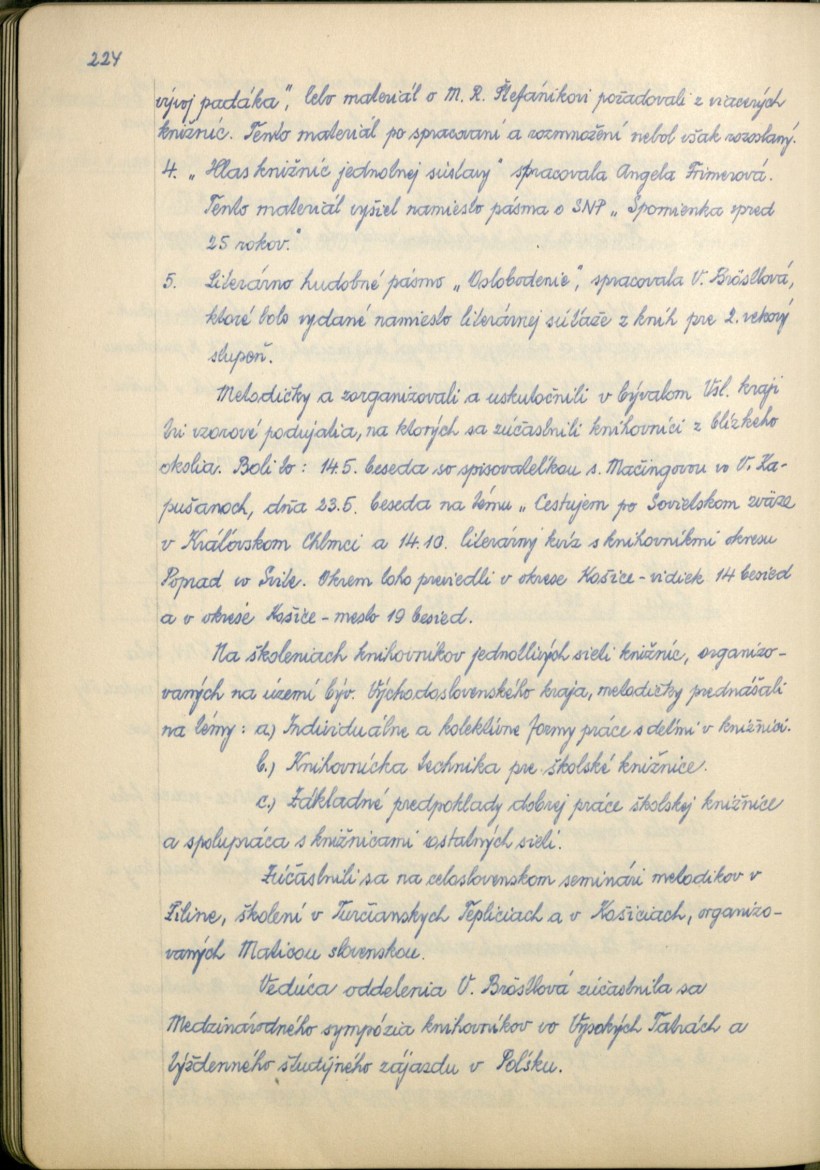 224
vývoj padáka", lebo materiál o M. R. Štefánikovi požadovali z viacerých
knižníc. Tento materiál po spracovaní a rozmnožení nebol však rozoslaný.
4. „Hlas knižníc jednotnej sústavy" spracovala Angela Frimerová.
Tento materiál vyšiel namiesto pásma o SNP „Spomienka spred
25 rokov."
5. Literárno hudobné pásmo „Oslobodenie", spracovala V. Bröstlová,
ktoré bolo vydané namiesto literárnej súťaže z kníh pre 2. vekový
stupeň.
Metodičky a zorganizovali a uskutočnili v bývalom Vsl. kraji
tri vzorové podujatia, na ktorých sa zúčastnili knihovníci z blízkeho
okolia. Boli to: 14.5. beseda so spisovateľkou s. Mačingovou vo V. Ka-
pušanoch, dňa 23.5. beseda na tému „Cestujem po Sovietskom zväze
v Kráľovskom Chlmci a 14.10. literárny kvíz s knihovníkmi okresu
Poprad vo Svite. Okrem toho previedli v okrese Košice-vidiek 14 besied
a v okrese Košice-mesto 19 besied.
Na školeniach knihovníkov jednotlivých sietí knižníc, organizo-
vaných na území býv. Východoslovenského kraja, metodičky prednášali
na témy: a) Individuálne a kolektívne formy práce s deťmi v knižnici.
b.) Knihovnícka technika pre školské knižnice.
c.) Základné predpoklady dobrej práce školskej knižnice
a spolupráca s knižnicami ostatných sietí.
Zúčastnili sa na celoslovenskom seminári metodikov v
Žiline, školení v Turčianskych Tepliciach a v Košiciach, organizo-
vaných Maticou slovenskou.
Vedúca oddelenia V. Bröstlová zúčastnila sa
Medzinárodného sympózia knihovníkov vo Vysokých Tatrách a
týždenného študijného zájazdu v Poľsku.